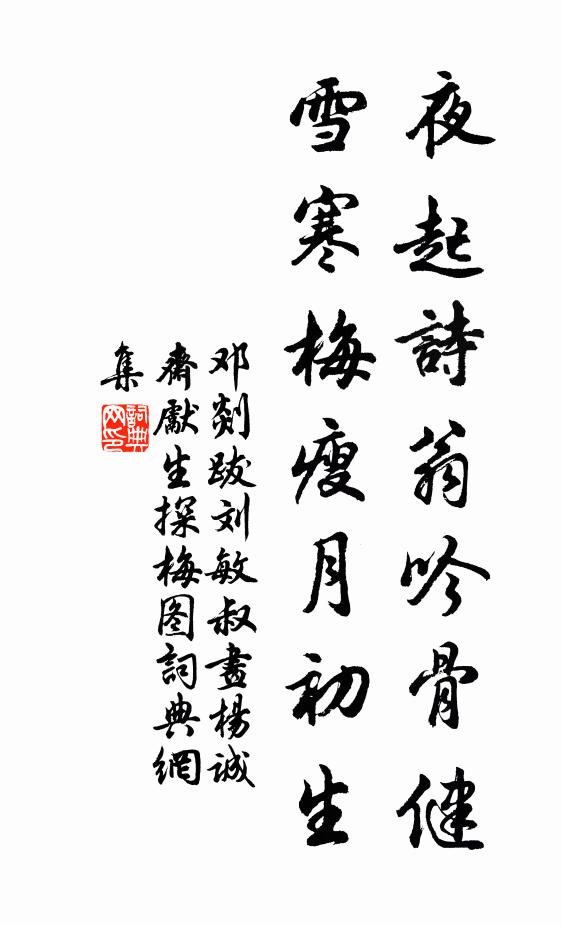 夜起詩翁吟骨健
雪寒梅瘦月初生
邓剡跋刘敏叔畫楊誠
齋獻生探梅图詞典網
集
詞典
网印